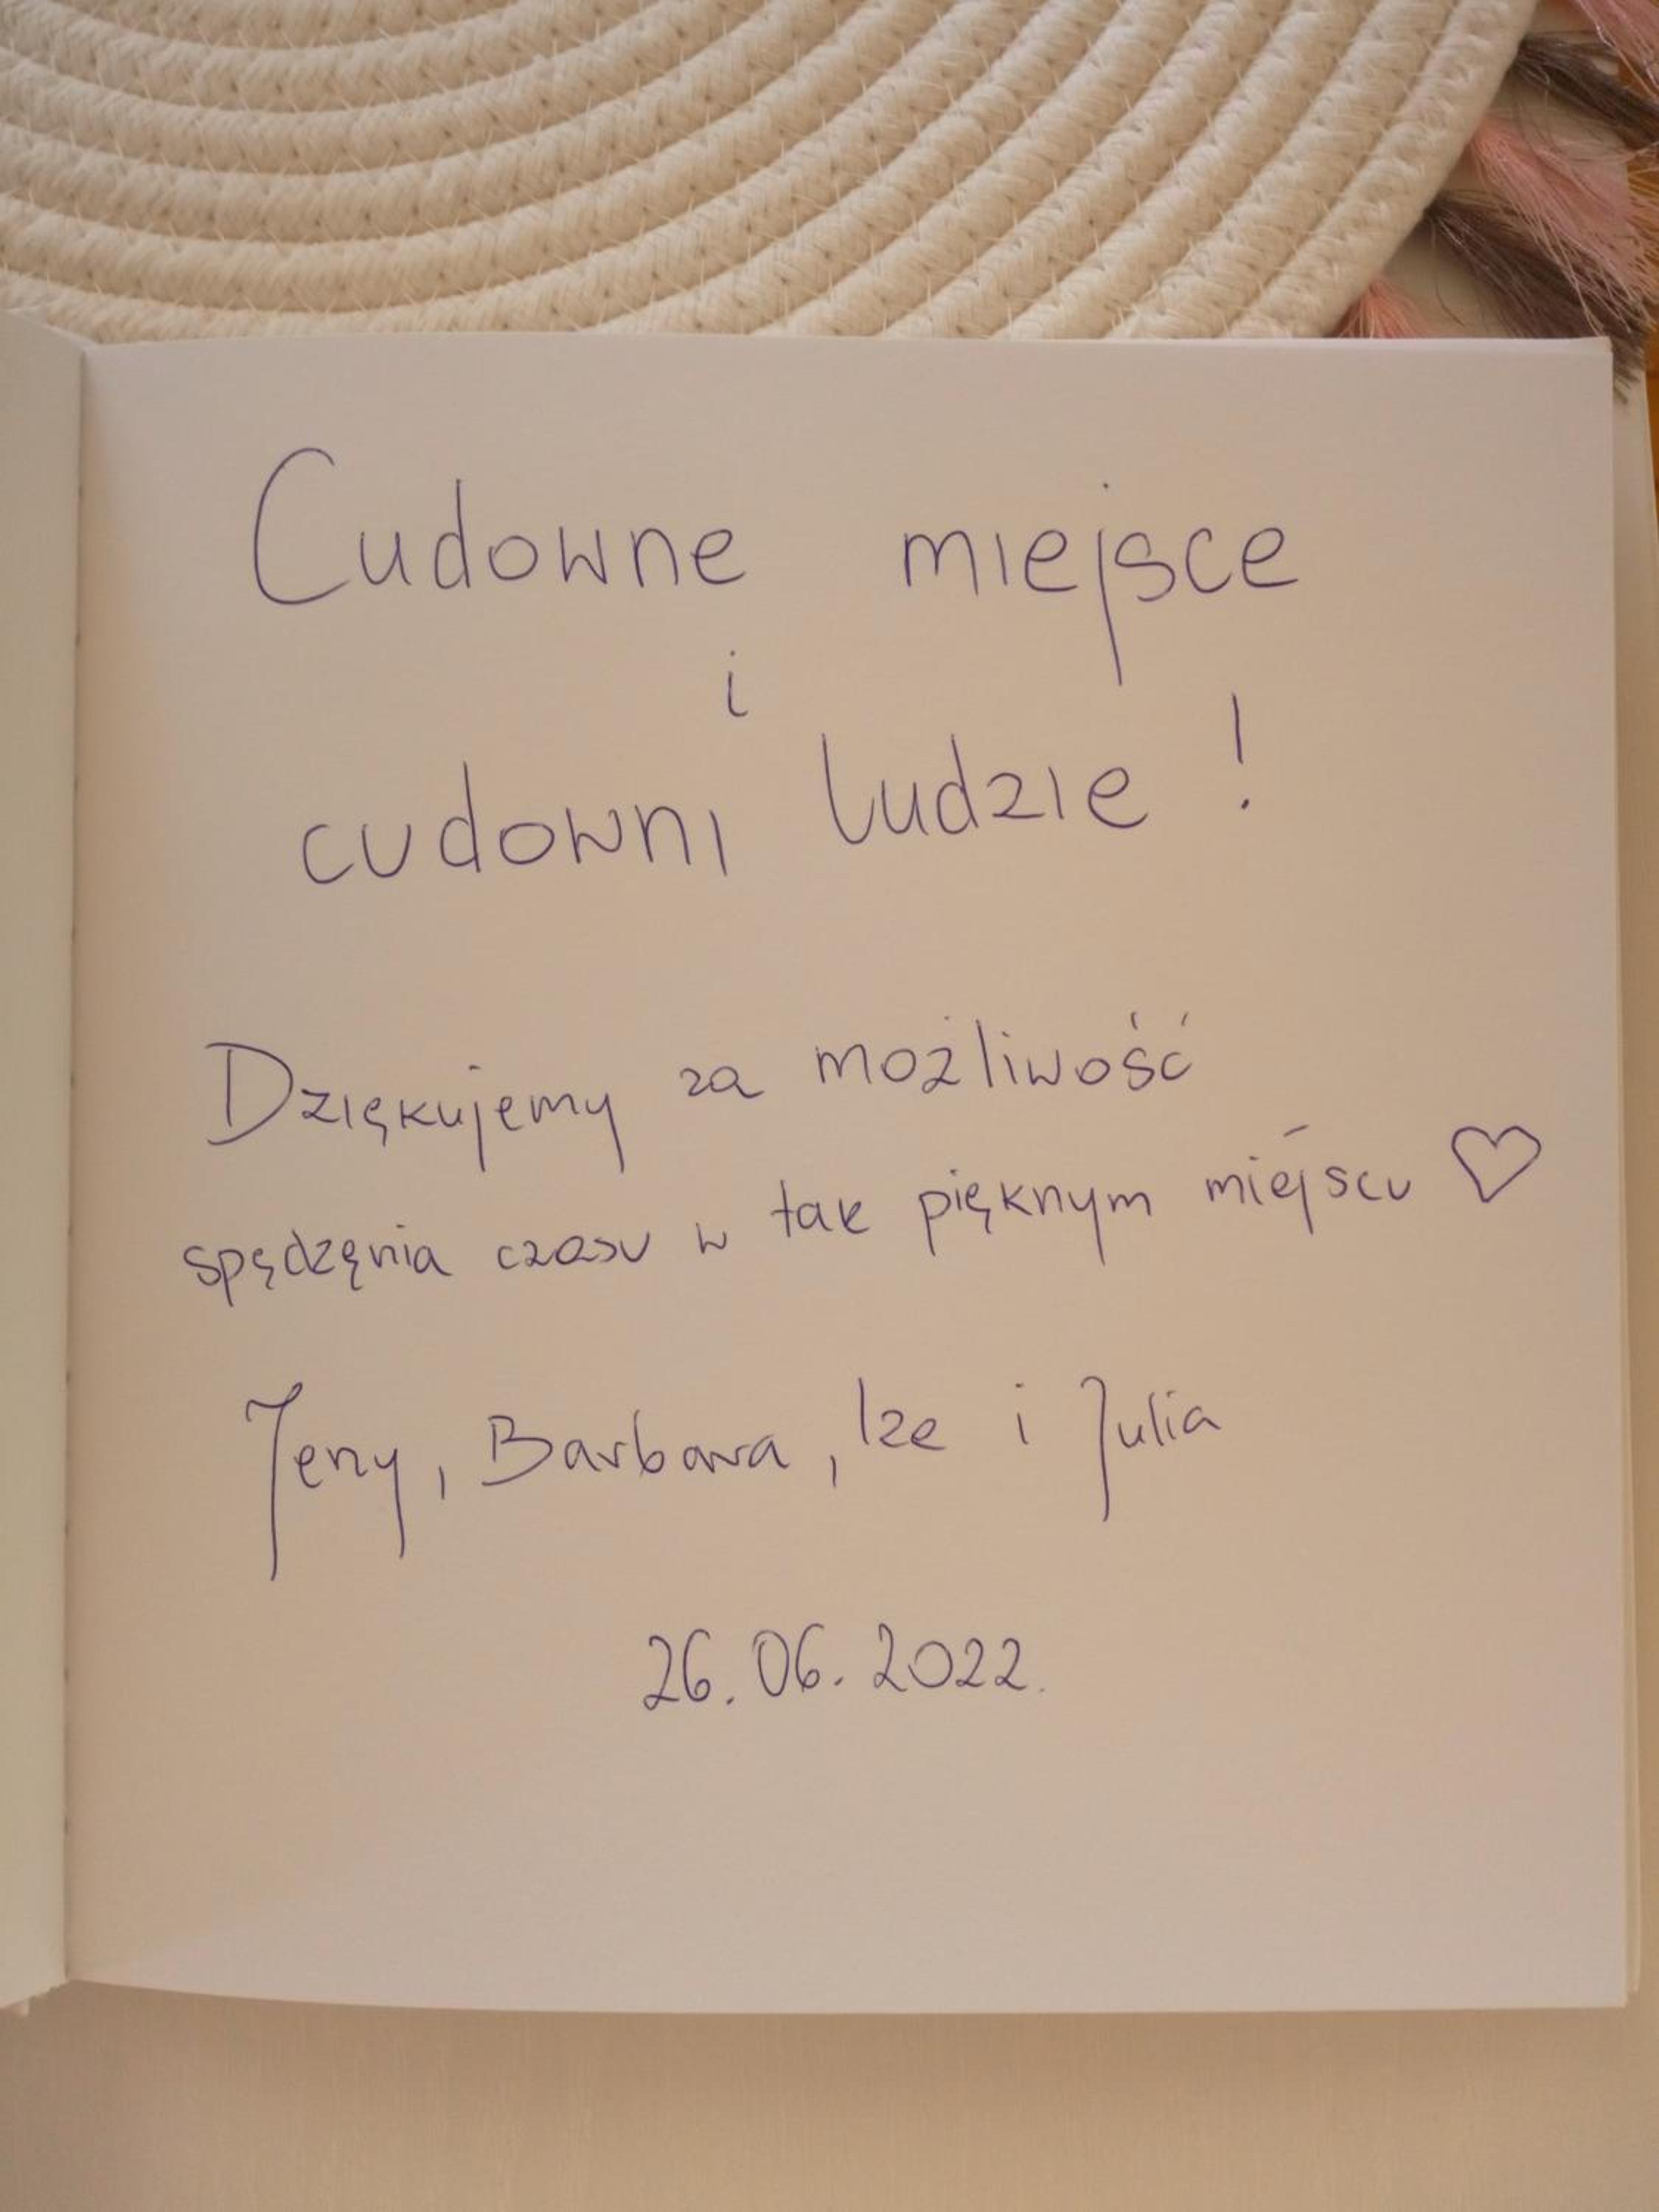 Cudowne miejsce
i
cudowni ludzie!
Dziękujemy za możliwość
spędzęnia czasu w tak pięknym miejscu ♡
Jerzy, Barbara, Iza i Julia
26.06.2022.